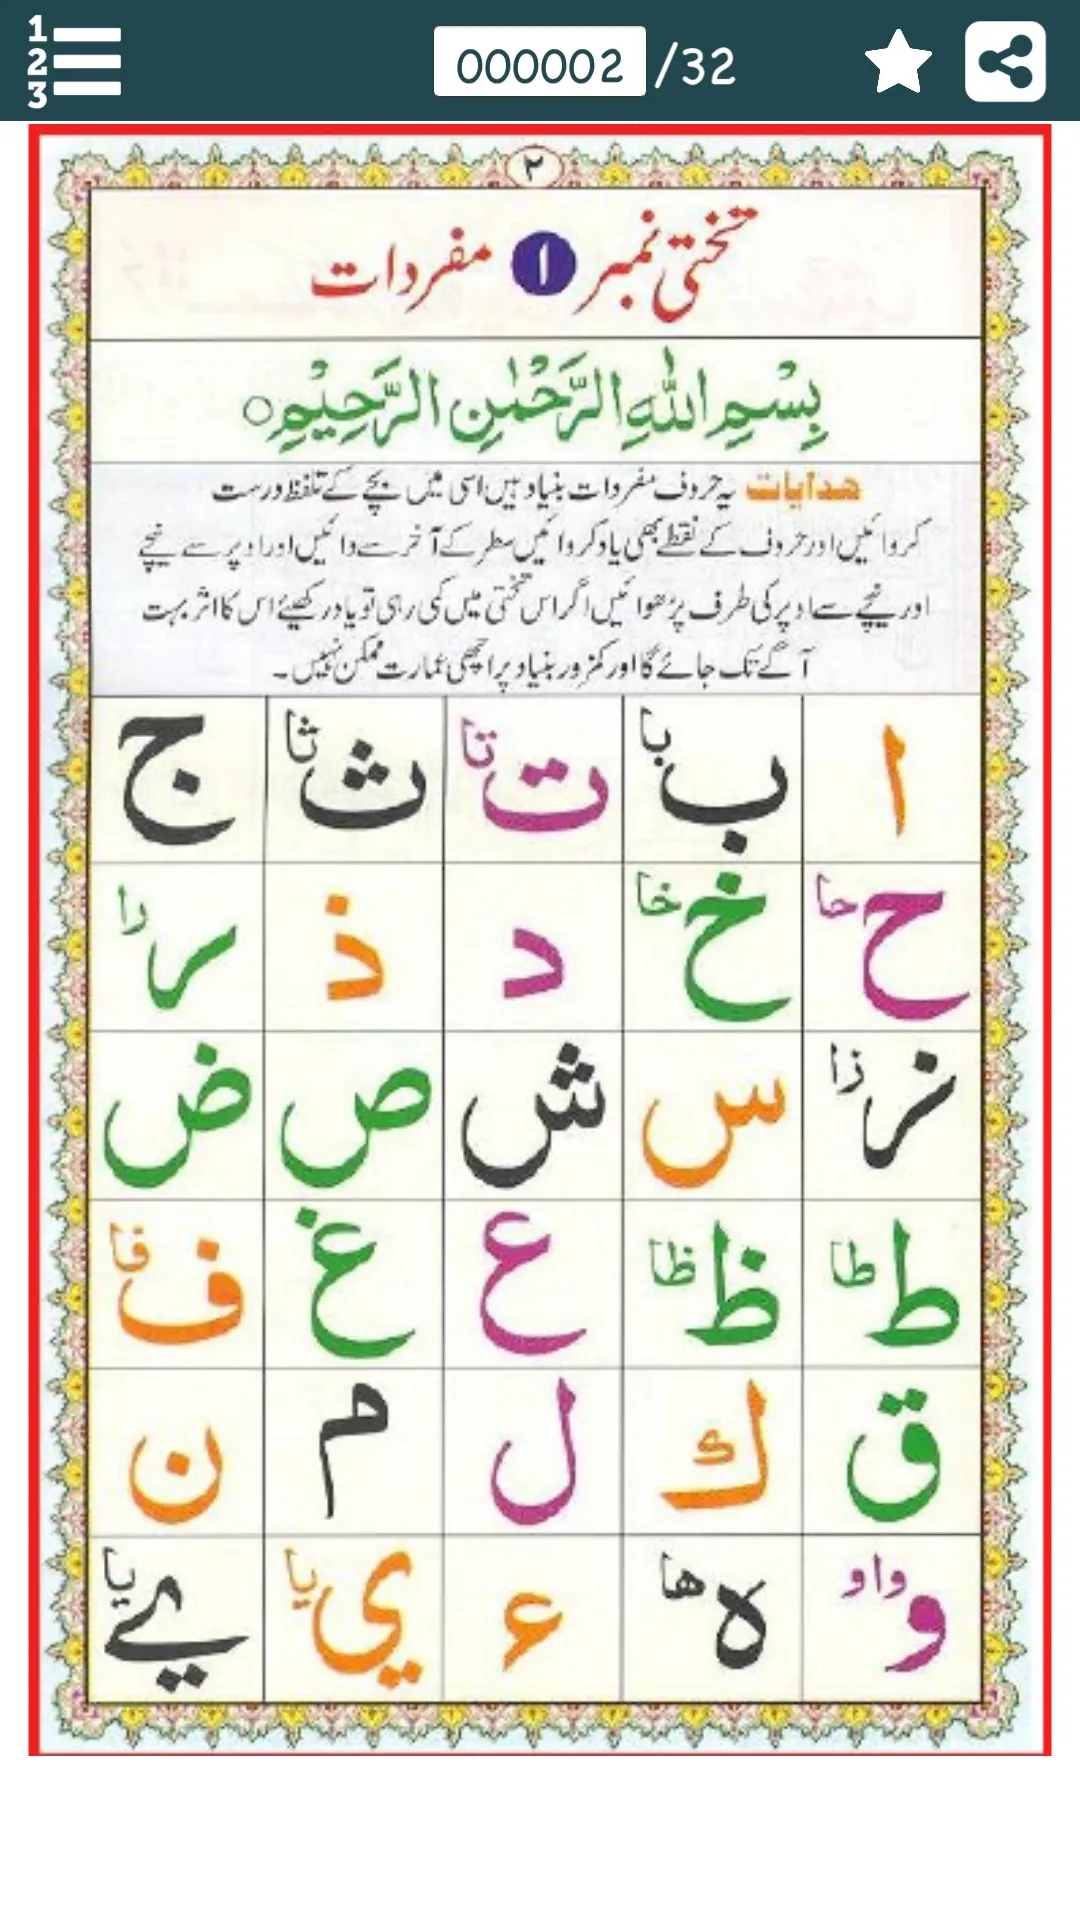 1
2
3
000002 /32
٢
تختی نمبر ١ مفردات
بِسْمِ اللّٰهِ الرَّحْمٰنِ الرَّحِيْمِ ○
ھدایات یہ حروف مفردات بنیاد ہیں اسی میں بچے کے تلفظ درست
کروائیں اور حروف کے نقطے بھی یاد کروائیں سطر کے آخر سے دائیں اور اوپر سے نیچے
اور نیچے سے اوپر کی طرف پڑھوائیں اگر اس تختی میں کمی رہی تو یاد رکھیئے اس کا اثر بہت
آگے تک جائے گا اور کمزور بنیاد پر اچھی عمارت ممکن نہیں۔
ا ب با ت تا ث ثا ج
ح حا خ خا د ذ ر را
ز زا س ش ص ض
ط طا ظ ظا ع غ ف فا
ق ك ل م ن
و واو ه ها ء ي يا ے يا